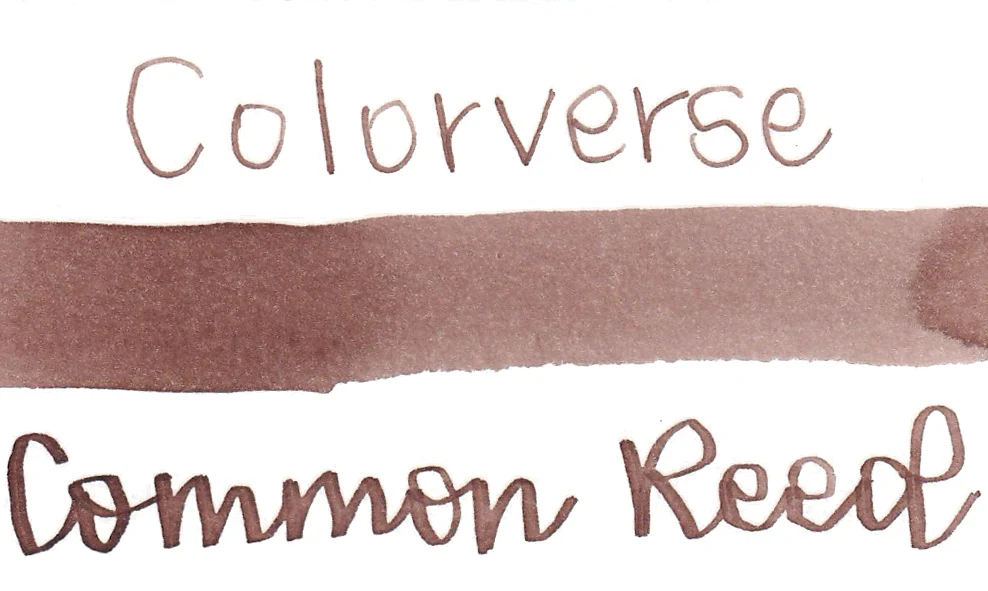 Colorverse
Common Reed